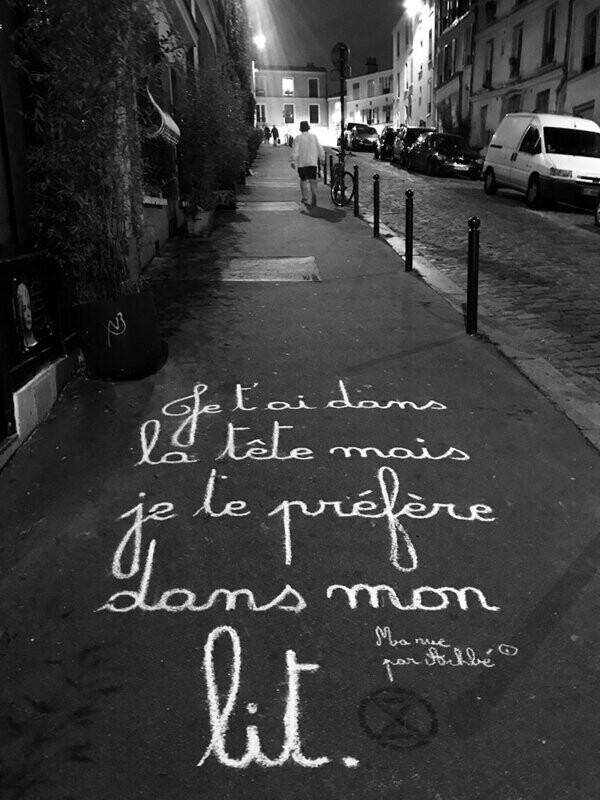 Je t'ai dans
la tête mais
je te préfère
dans mon
lit.
Ma rue
par Achbé